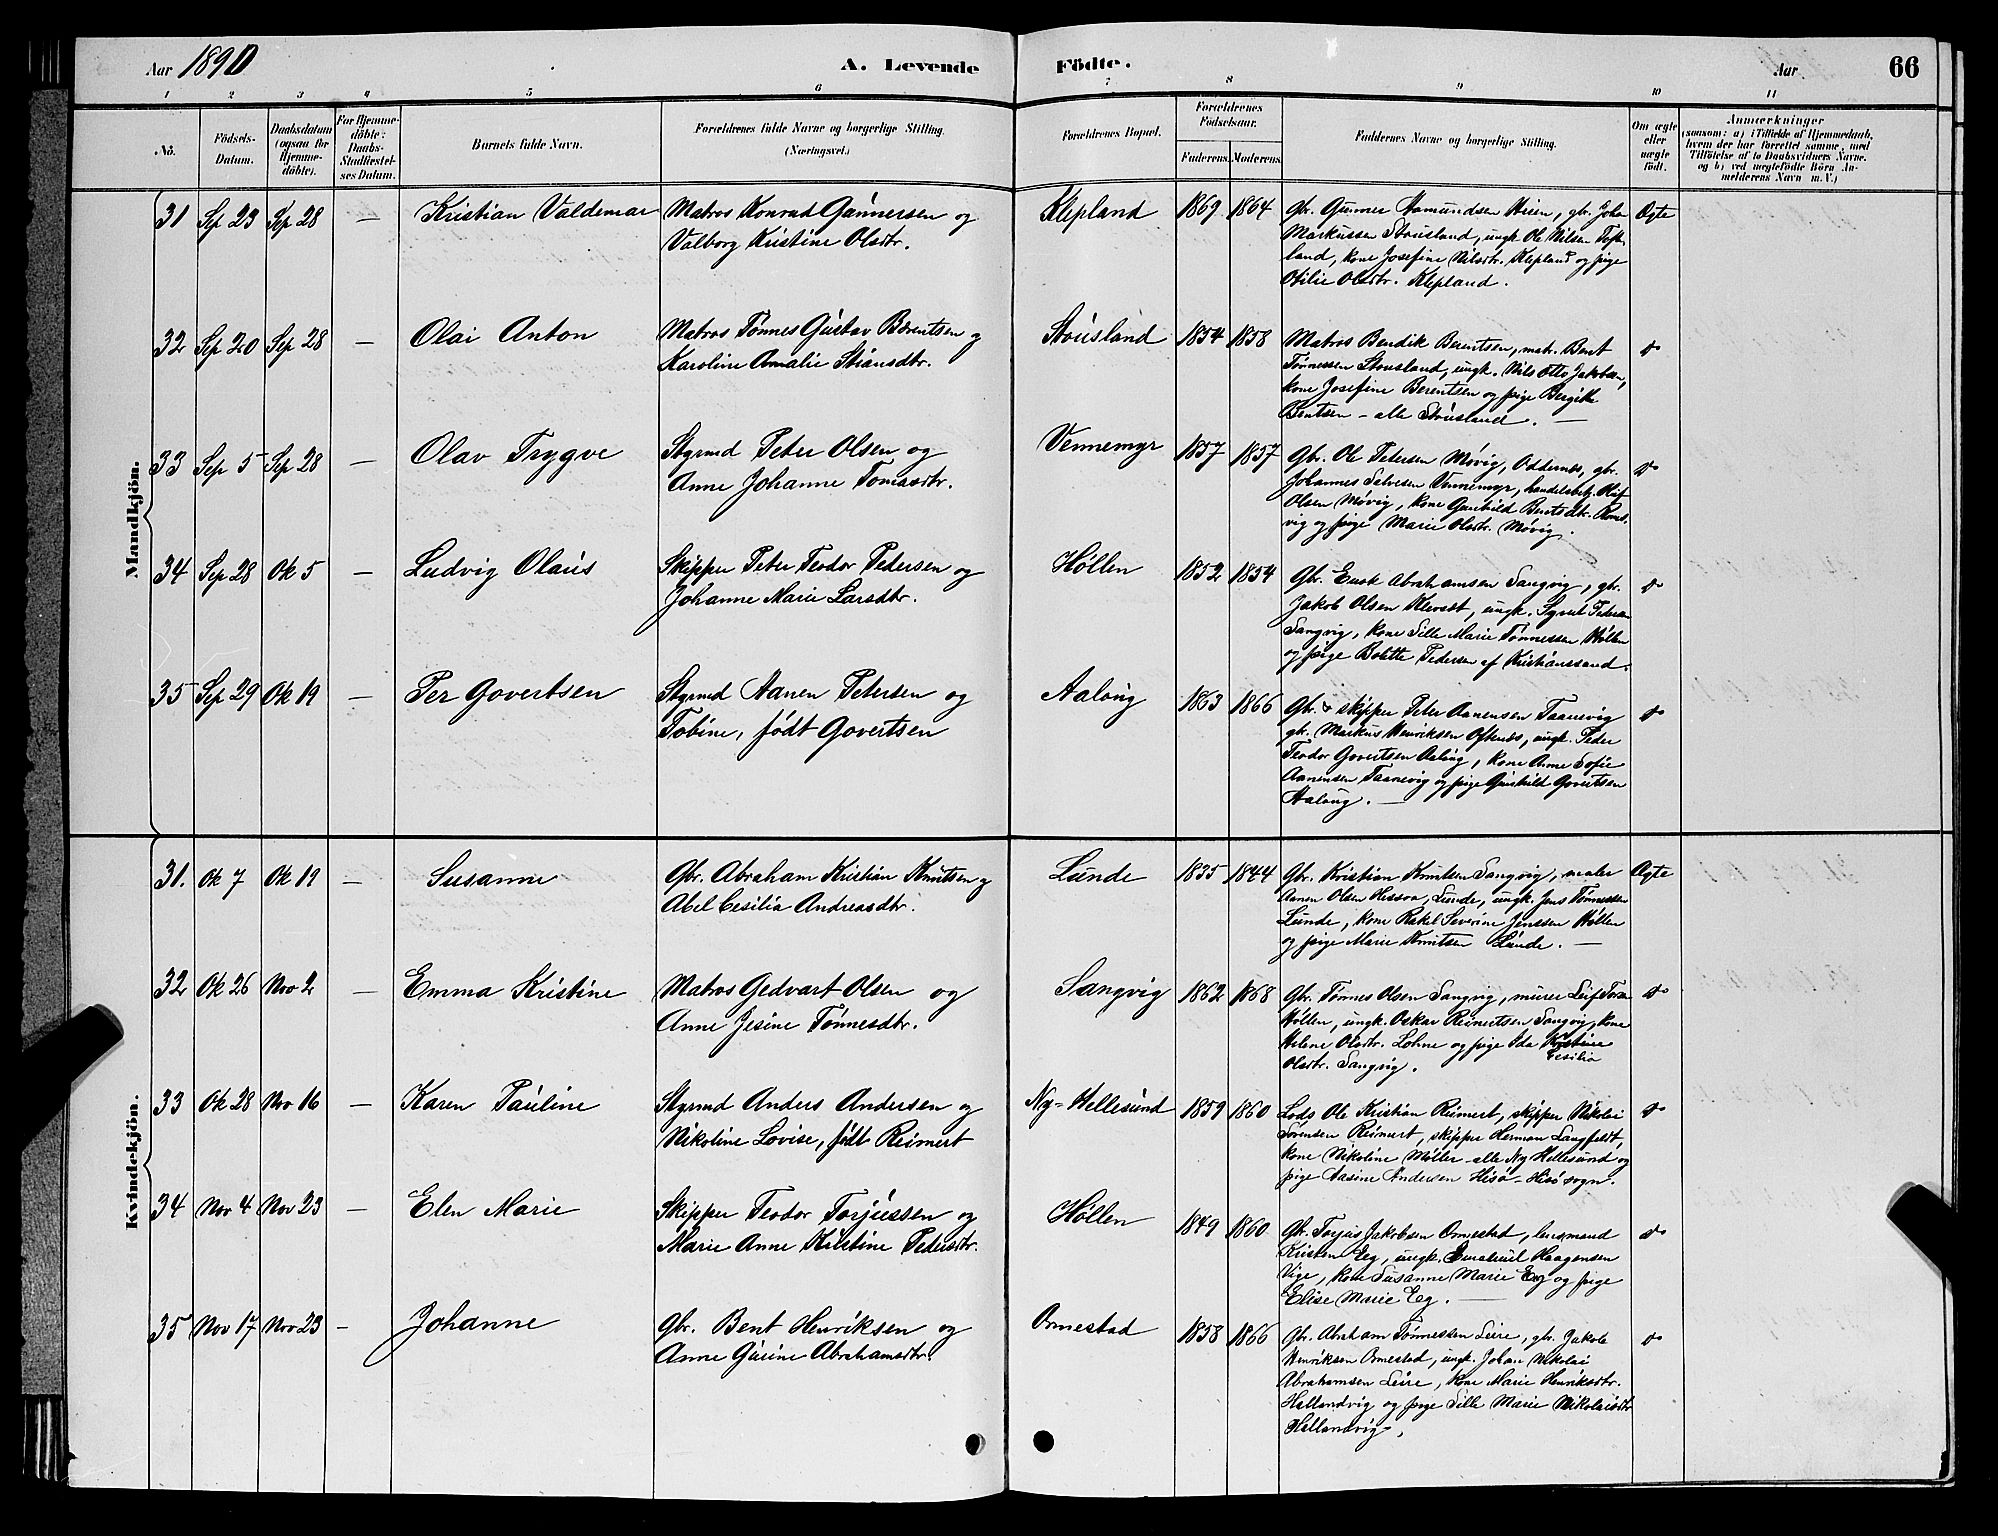 Aar 1890
A. Levende
Födte.
Aar
66
1 2 3 4 5 6 7 8 9 10 11
No.
Födsels-
Datum.
Daabsdatum
(ogsaa for
Hjemme-
döbte).
For Hjemme-
döbte:
Daabs-
Stadfæstel-
ses Datum.
Barnets fulde Navn.
Forældrenes fulde Navne og borgerlige Stilling.
(Næringsvei.)
Forældrenes Bopæl.
Forældrenes
Födselsaar.
Faderens.
Moderens.
Faddernes Navne og borgerlige Stilling.
Om ægte
eller
uægte
födt.
Anmærkninger
(saasom: a) i Tilfælde af Hjemmedaab,
hvem der har forrettet samme, med
Tilföielse af to Daabsvidners Navne.
og b) ved uægtefödte Börn An-
melderens Navn m. V.)
Mandkjön.
31 Sp 23 Sp 28 — Kristian Valdemar
Matros Konrad Gunnersen og
Valborg Kristine Olsdtr.
Klepland 1869 1864
Gbr. Gunner Aamundsen Heien, gbr. Johan
Markussen Stousland, ungk Ole Nilsen Toft-
land, kone Josefine Nilsdtr. Klepland og pige
Otilie Olsdtr. Klepland.
Ægte
32 Sep 20 Sep 28 — Olai Anton
Matros Tønnes Gustav Berentsen og
Karoline Amalie Stiansdtr.
Stousland 1854 1858
Matros Bendik Berentsen, matr. Bent
Tønnessen Stousland, ungk. Nils Otto Jakobsen,
kone Josefine Berentsen og pige Bergitte
Bentsen – alle Stousland. —
do
33 Sep 5 Sep 28 — Olav Trygve
Styrmd Peter Olsen og
Anne Johanne Tomasdtr.
Vennemyr 1857 1857
Gbr. Ole Petersen Møvig, Oddernes, gbr.
Johannes Salvesen Vennemyr, handelsbetj. Olaf
Olsen Møvig, kone Gunhild Bentsdtr. Roms-
vig og pige Marie Olsdtr. Møvig.
do
34 Sep 28 Ok 5 — Ludvig Olaus
Skipper Peter Teodor Pedersen og
Johanne Marie Larsdtr.
Høllen 1852 1854
Gbr. Enok Abrahamsen Sangvig, gbr.
Jakob Olsen Kleveset, ungk. Sigvat Pedersen
Sangvig, kone Sille Marie Tønnessen Høllen
og pige Bolette Pedersen af Kristianssand.
do
35 Sep 29 Ok 19 — Per Govertsen
Styrmd Aanen Petersen og
Tobine, født Govertsen
Aalong 1863 1866
Gbr. & skipper Peter Aanensen Taanevig
gbr. Markus Henriksen Oftenes, ungk. Peder
Teodor Govertsen Aalong, kone Anne Sofie
Aanensen Taanevig og pige Gunhild Govertsen
Aalong. —
do
Kvindekjön.
31. Ok 7 Ok 19 — Susanne
Gbr. Abraham Kristian Knutsen og
Abel Cesilia Andreasdtr.
Lunde 1835 1844
Gbr. Kristian Knutsen Sangvig, maler
Aanen Olsen Hessaa, Lunde, ungk. Jens Tønnessen
Lunde, kone Rakel Severine Jenssen Høllen
og pige Marie Knutsen Lunde. —
Ægte
32 Ok 26 Nov 2 — Emma Kristine
Matros Gedvart Olsen og
Anne Jesine Tønnesdtr.
Sangvig 1862 1868
Gbr. Tønnes Olsen Sangvig, murer Leif
Høllen, ungk. Oskar Reinertsen Sangvig, kone
Helene Olsdtr. Lohne og pige Ida Kristine
Cesilia
Olsdtr. Sangvig.
do
33 Ok 28 Nov 16 — Karen Pauline
Styrmd Anders Andersen og
Nikoline Lovise, født Reimert
Ny-Hellesund 1859 1860
Lods Ole Kristian Reimert, skipper Nikolai
Sørensen Reimert, skipper Herman Langfeldt,
kone Nikoline Møller – alle Ny Hellesund og
pige Aasine Andersen Hisø – Hisø sogn.
do
34 Nov 4 Nov 23 — Elen Marie
Skipper Teodor Torjussen og
Marie Anne Kirstine Pedersdtr.
Høllen 1849 1860
Gbr. Torjus Jakobsen Ormestad, lensmand
Kristen Eeg, ungk. Emanuel Haagensen
Vige, kone Susanne Marie Eeg og pige
Elise Marie Eeg. —
do
35 Nov 17 Nov 23 — Johanne
Gbr. Bent Henriksen og
Anne Gurine Abrahamsdtr.
Ormestad 1858 1866
Gbr. Abraham Tønnessen Leire, gbr. Jakob
Henriksen Ormestad, ungk. Johan Nikolai
Abrahamsen Leire, kone Marie Henriksdtr.
Hallandvig og pige Sille Marie Nikolaisdtr
Hallandvig.
do